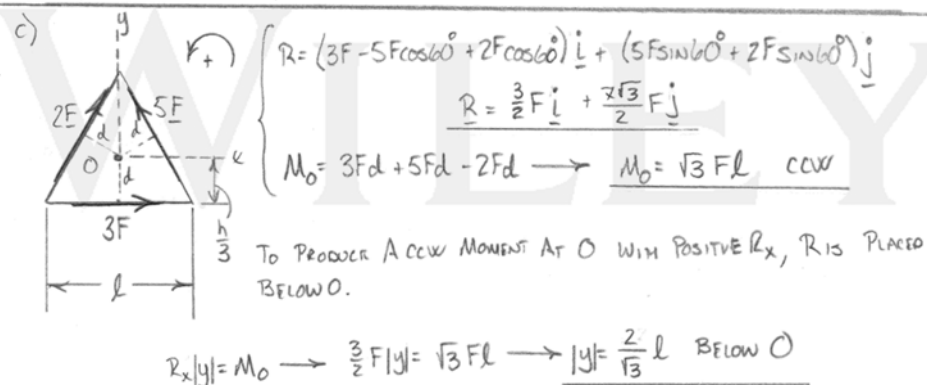 WILEY
c)
y
+
R = (3F - 5Fcos60° + 2Fcos60°) i + (5Fsin60° + 2Fsin60°) j
2F
5F
d
d
R = 3/2 F i + 7√3/2 F j
O
x
d
M₀ = 3Fd + 5Fd - 2Fd → M₀ = √3 Fl CCW
3F
h/3
TO PRODUCE A CCW MOMENT AT O WITH POSITIVE Rₓ, R IS PLACED
BELOW O.
l
Rₓ|y| = M₀ → 3/2 F|y| = √3 Fl → |y| = 2/√3 l BELOW O